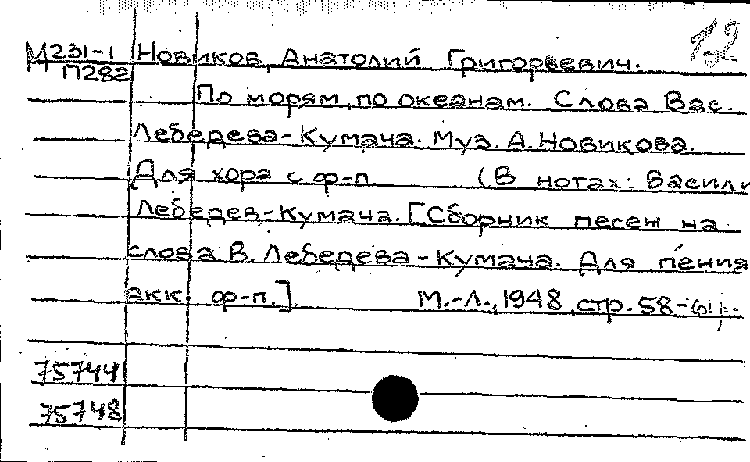 12
М231-1 Новиков, Анатолий Григорьевич.
П282
По морям, по океанам. Слова Вас.
Лебедева-Кумача. Муз. А. Новикова.
Для хора с ф-п (В нотах: Васили
Лебедев-Кумача. [Сборник песен на
слова В. Лебедева-Кумача. Для пения
акк ф-п.] М.-Л., 1948, стр. 58-61).
75744
75748